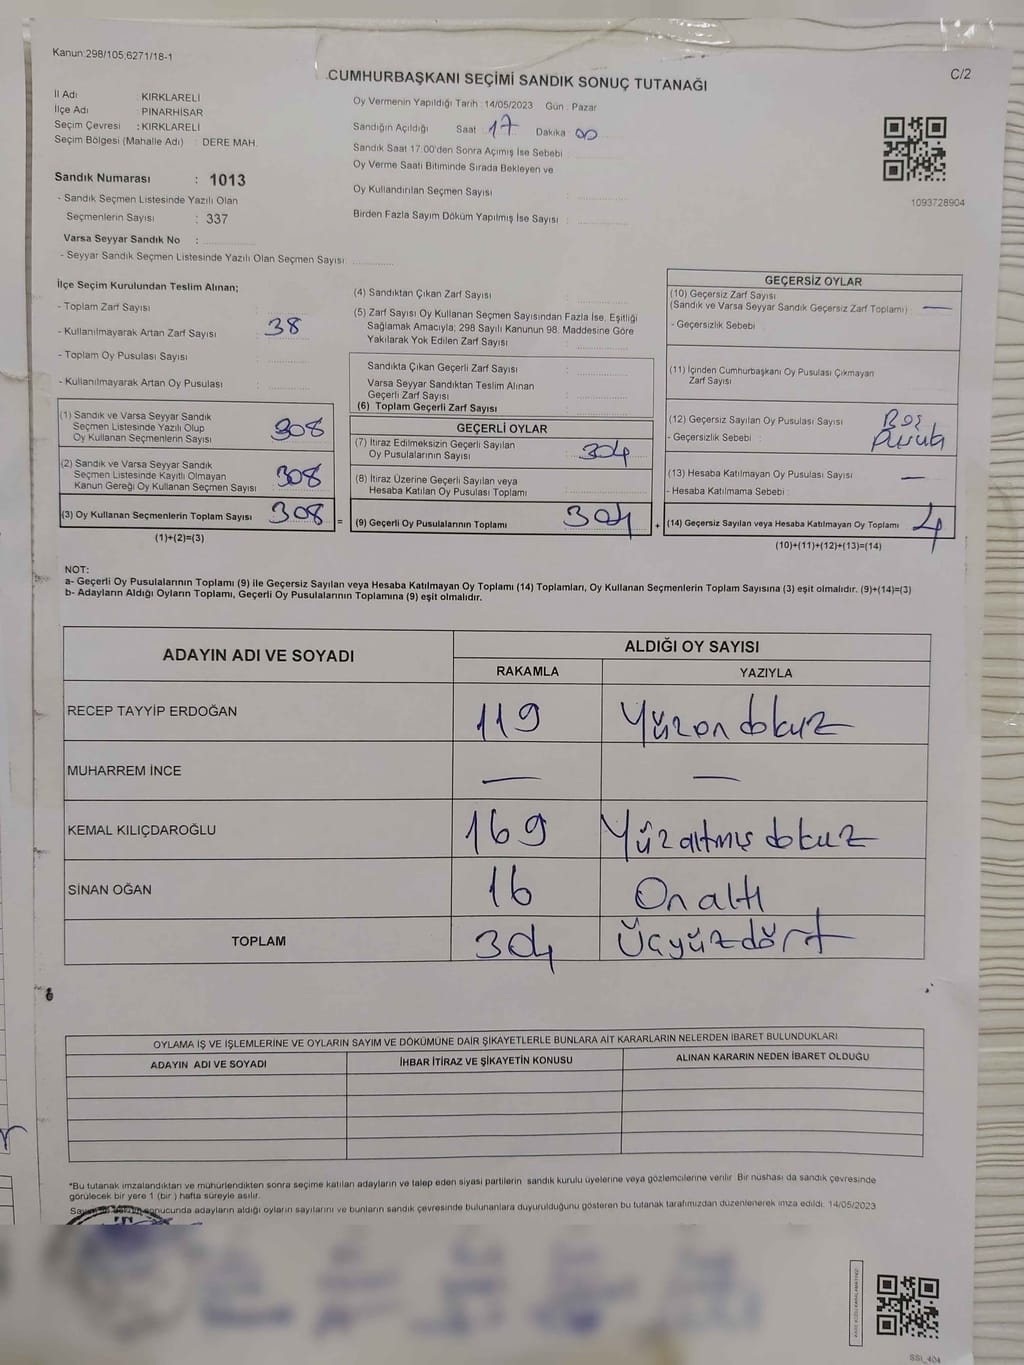 Kanun:298/105;6271/18-1
C/2
CUMHURBAŞKANI SEÇİMİ SANDIK SONUÇ TUTANAĞI
İl Adı : KIRKLARELİ
İlçe Adı : PINARHİSAR
Seçim Çevresi : KIRKLARELİ
Seçim Bölgesi (Mahalle Adı) : DERE MAH.
Oy Vermenin Yapıldığı Tarih : 14/05/2023 Gün : Pazar
Sandığın Açıldığı Saat : 17 Dakika : 00
Sandık Saat 17:00'den Sonra Açımış İse Sebebi :
Oy Verme Saati Bitiminde Sırada Bekleyen ve
Oy Kullandırılan Seçmen Sayısı :
Birden Fazla Sayım Döküm Yapılmış İse Sayısı :
1093728904
Sandık Numarası : 1013
- Sandık Seçmen Listesinde Yazılı Olan
Seçmenlerin Sayısı : 337
Varsa Seyyar Sandık No :
- Seyyar Sandık Seçmen Listesinde Yazılı Olan Seçmen Sayısı:
İlçe Seçim Kurulundan Teslim Alınan;
- Toplam Zarf Sayısı :
- Kullanılmayarak Artan Zarf Sayısı : 38
- Toplam Oy Pusulası Sayısı :
- Kullanılmayarak Artan Oy Pusulası :
(1) Sandık ve Varsa Seyyar Sandık
Seçmen Listesinde Yazılı Olup
Oy Kullanan Seçmenlerin Sayısı 308
(2) Sandık ve Varsa Seyyar Sandık
Seçmen Listesinde Kayıtlı Olmayan
Kanun Gereği Oy Kullanan Seçmen Sayısı 308
(3) Oy Kullanan Seçmenlerin Toplam Sayısı 308 =
(1)+(2)=(3)
(4) Sandıktan Çıkan Zarf Sayısı :
(5) Zarf Sayısı Oy Kullanan Seçmen Sayısından Fazla İse, Eşitliği
Sağlamak Amacıyla; 298 Sayılı Kanunun 98. Maddesine Göre
Yakılarak Yok Edilen Zarf Sayısı :
Sandıkta Çıkan Geçerli Zarf Sayısı :
Varsa Seyyar Sandıktan Teslim Alınan
Geçerli Zarf Sayısı :
(6) Toplam Geçerli Zarf Sayısı :
GEÇERLİ OYLAR
(7) İtiraz Edilmeksizin Geçerli Sayılan
Oy Pusulalarının Sayısı : 304
(8) İtiraz Üzerine Geçerli Sayılan veya
Hesaba Katılan Oy Pusulası Toplamı :
(9) Geçerli Oy Pusulalarının Toplamı 304 +
GEÇERSİZ OYLAR
(10) Geçersiz Zarf Sayısı
(Sandık ve Varsa Seyyar Sandık Geçersiz Zarf Toplamı) : —
- Geçersizlik Sebebi :
(11) İçinden Cumhurbaşkanı Oy Pusulası Çıkmayan
Zarf Sayısı :
(12) Geçersiz Sayılan Oy Pusulası Sayısı : Boş
- Geçersizlik Sebebi : Pusula
(13) Hesaba Katılmayan Oy Pusulası Sayısı : —
- Hesaba Katılmama Sebebi :
(14) Geçersiz Sayılan veya Hesaba Katılmayan Oy Toplamı 4
(10)+(11)+(12)+(13)=(14)
NOT:
a- Geçerli Oy Pusulalarının Toplamı (9) ile Geçersiz Sayılan veya Hesaba Katılmayan Oy Toplamı (14) Toplamları, Oy Kullanan Seçmenlerin Toplam Sayısına (3) eşit olmalıdır. (9)+(14)=(3)
b- Adayların Aldığı Oyların Toplamı, Geçerli Oy Pusulalarının Toplamına (9) eşit olmalıdır.
ADAYIN ADI VE SOYADI
ALDIĞI OY SAYISI
RAKAMLA YAZIYLA
RECEP TAYYİP ERDOĞAN 119 Yüzondokuz
MUHARREM İNCE — —
KEMAL KILIÇDAROĞLU 169 Yüzaltmışdokuz
SİNAN OĞAN 16 Onaltı
TOPLAM 304 Üçyüzdört
OYLAMA İŞ VE İŞLEMLERİNE VE OYLARIN SAYIM VE DÖKÜMÜNE DAİR ŞİKAYETLERLE BUNLARA AİT KARARLARIN NELERDEN İBARET BULUNDUKLARI
ADAYIN ADI VE SOYADI İHBAR İTİRAZ VE ŞİKAYETİN KONUSU ALINAN KARARIN NEDEN İBARET OLDUĞU
*Bu tutanak imzalandıktan ve mühürlendikten sonra seçime katılan adayların ve talep eden siyasi partilerin sandık kurulu üyelerine veya gözlemcilerine verilir. Bir nüshası da sandık çevresinde
görülecek bir yere 1 (bir ) hafta süreyle asılır.
sonucunda adayların aldığı oyların sayılarını ve bunların sandık çevresinde bulunanlara duyurulduğunu gösteren bu tutanak tarafımızdan düzenlenerek imza edildi. 14/05/2023